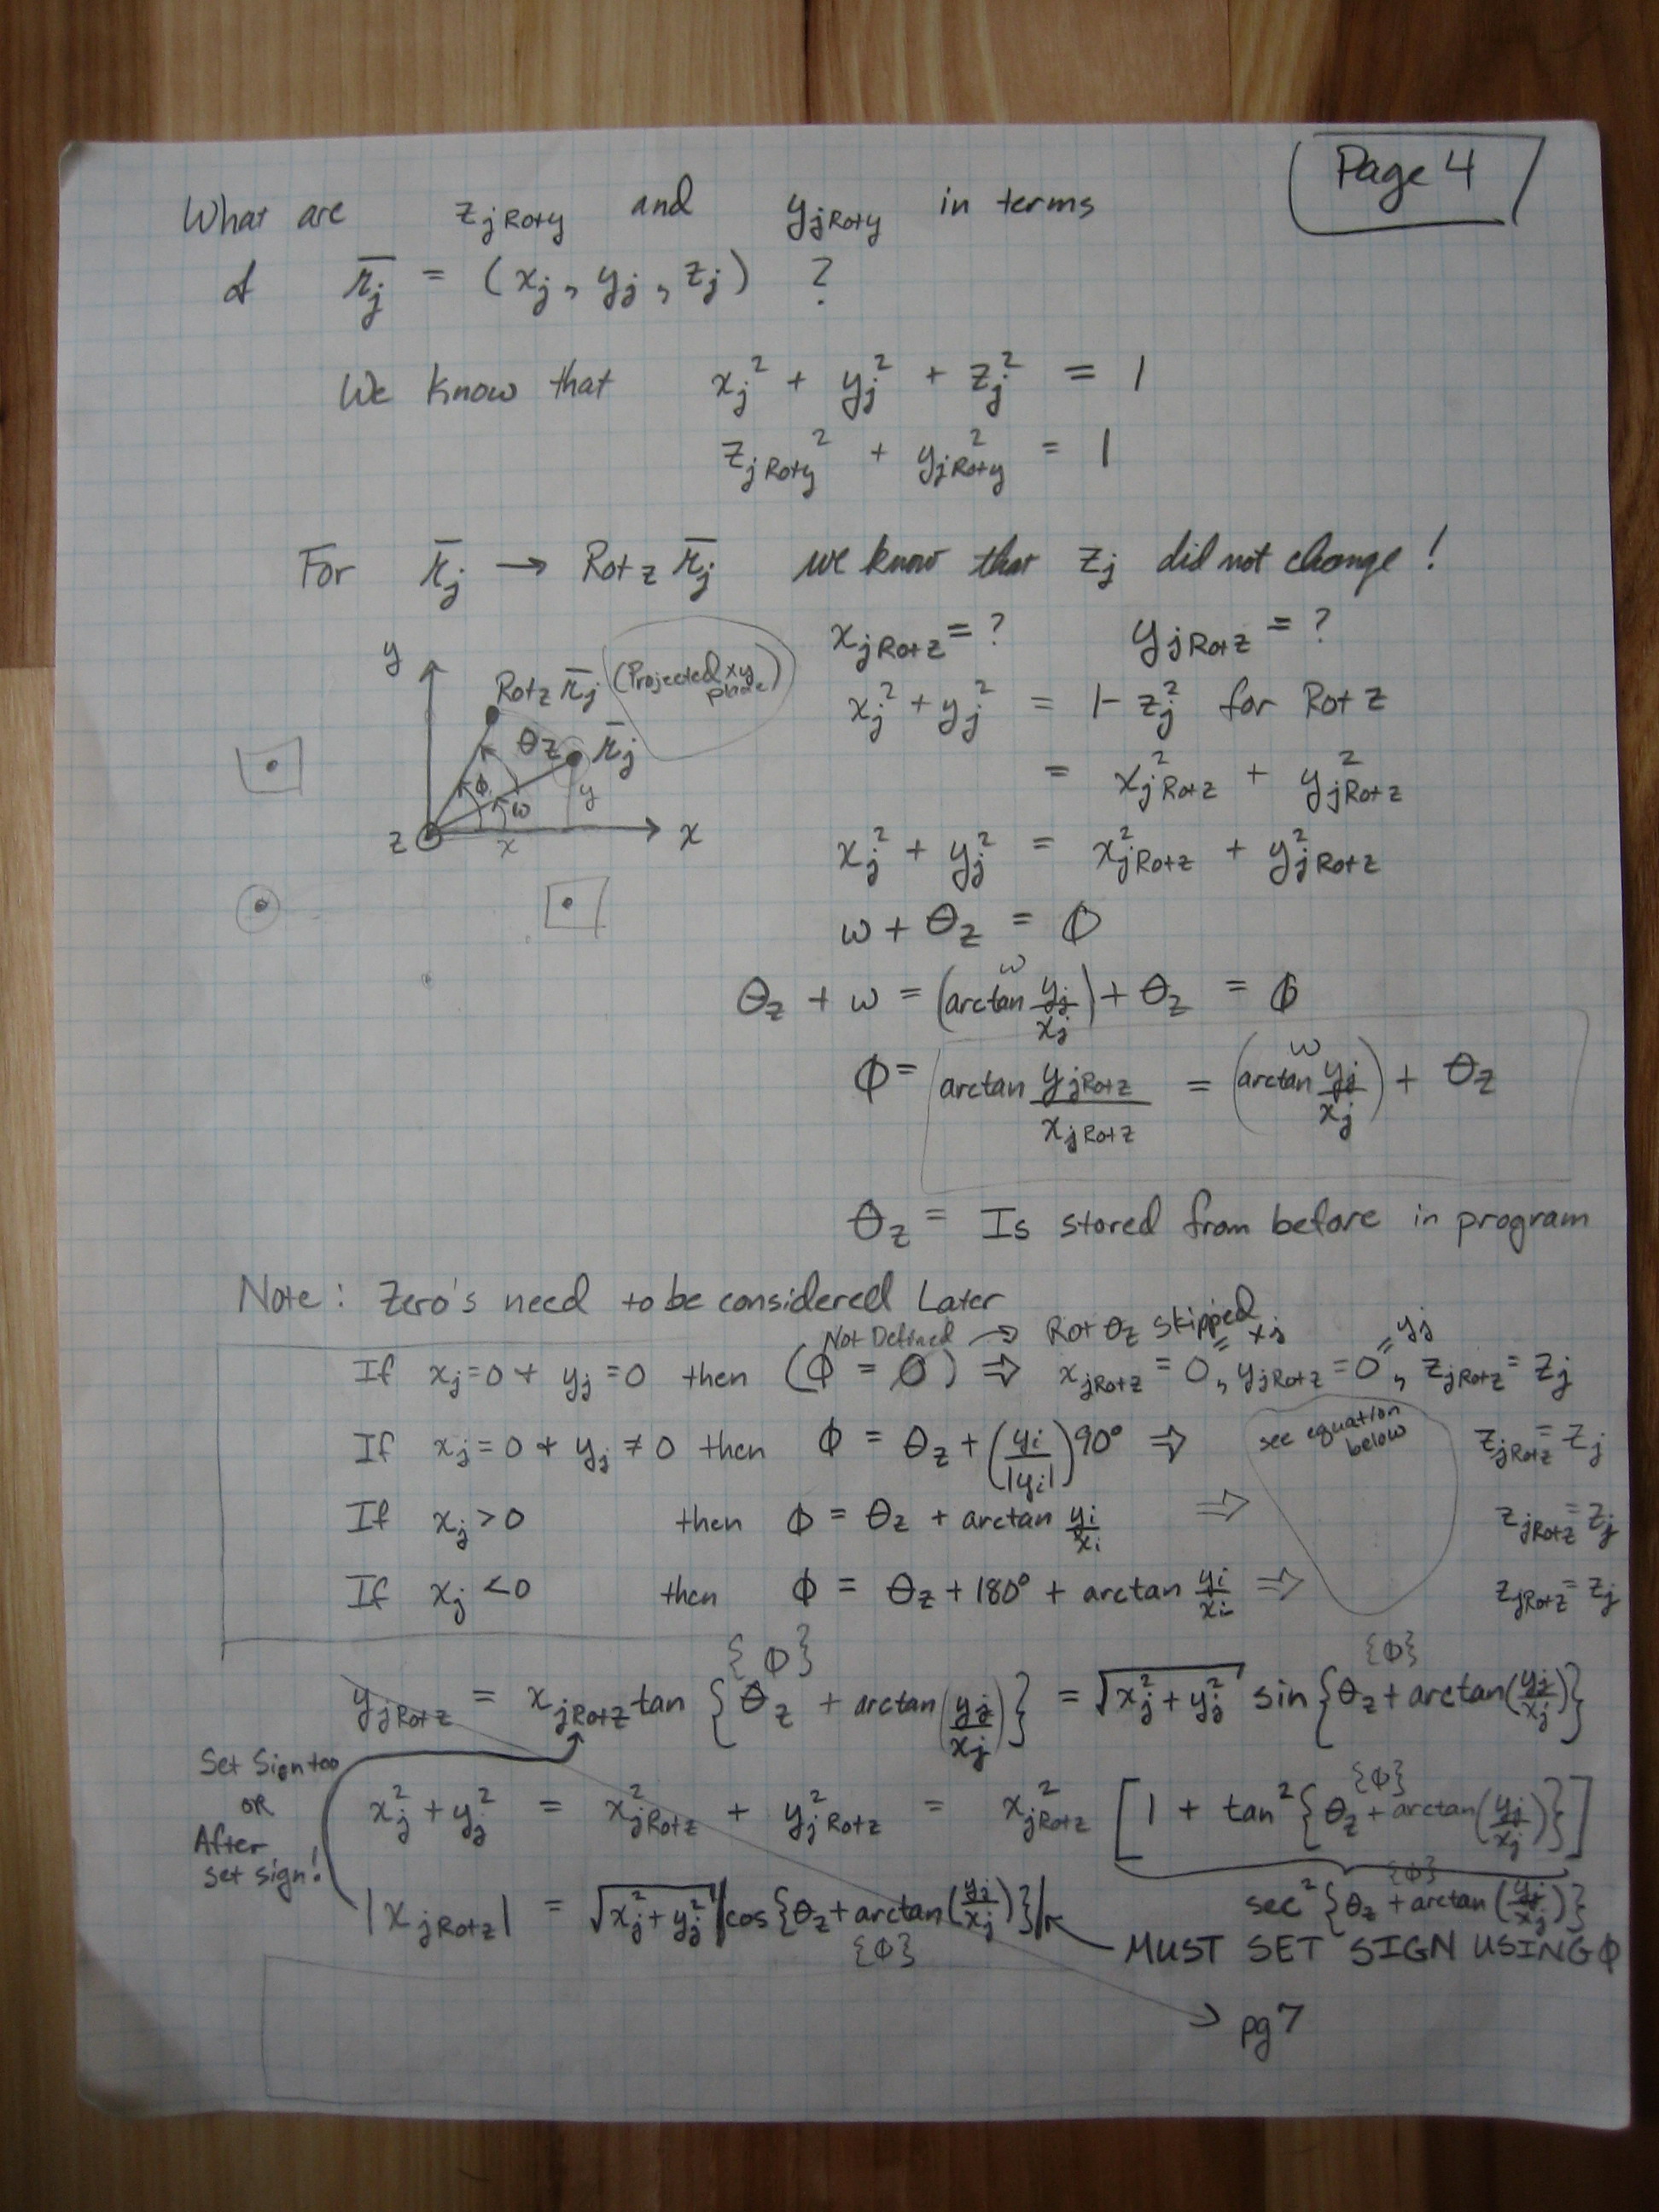 Page 4
What are z_jRoty and y_jRoty in terms
of r̄_j = (x_j, y_j, z_j) ?
We know that x_j² + y_j² + z_j² = 1
z_jRoty² + y_jRoty² = 1
For r̄_j → Rot z r̄_j we know that z_j did not change!
x_jRotz = ? y_jRotz = ?
y
Rotz r̄_j (Projected xy plane)
θ_z r̄_j
φ ω y
z x x
x_j² + y_j² = 1 - z_j² for Rot z
= x_jRotz² + y_jRotz²
x_j² + y_j² = x_jRotz² + y_jRotz²
ω + θ_z = φ
θ_z + ω = (arctan y_j/x_j) + θ_z = φ
ω
φ = arctan y_jRotz/x_jRotz = (arctan y_j/x_j) + θ_z
ω
θ_z = Is stored from before in program
Note: Zero's need to be considered Later
Not Defined → Rot θz skipped
If x_j = 0 + y_j = 0 then (φ = 0) ⇒ x_jRotz = 0 = x_j, y_jRotz = 0 = y_j, z_jRotz = z_j
If x_j = 0 + y_j ≠ 0 then φ = θ_z + (y_i/|y_i|) 90° ⇒ see equation below z_jRotz = z_j
If x_j > 0 then φ = θ_z + arctan y_i/x_i ⇒ z_jRotz = z_j
If x_j < 0 then φ = θ_z + 180° + arctan y_i/x_i ⇒ z_jRotz = z_j
{φ} {φ}
y_jRotz = x_jRotz tan {θ_z + arctan(y_j/x_j)} = √(x_j² + y_j²) sin {θ_z + arctan(y_j/x_j)}
Set Sign too
OR
After
set sign!
{φ}
x_j² + y_j² = x_jRotz² + y_jRotz² = x_jRotz² [1 + tan² {θ_z + arctan(y_j/x_j)}]
{φ}
sec² {θ_z + arctan(y_j/x_j)}
|x_jRotz| = √(x_j² + y_j²) |cos {θ_z + arctan(y_j/x_j)}|
{φ}
MUST SET SIGN USING φ
pg 7